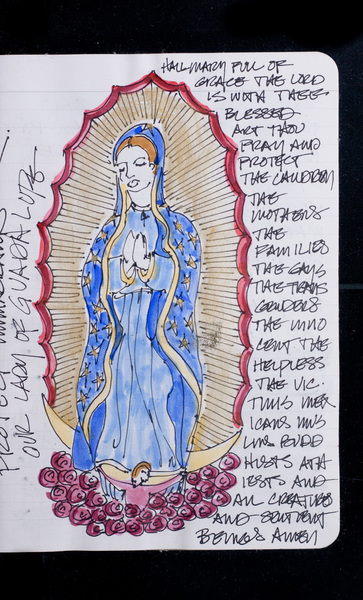 HAIL MARY FULL OF
GRACE THE LORD
IS WITH THEE
BLESSED
ART THOU
PRAY AND
PROTECT
THE CHILDREN
THE
MOTHERS
THE
FAMILIES
THE GAYS
THE TRANS
GENDERS
THE INNO
CENT THE
HELPLESS
THE VIC.
TIMS MEX
ICANS MUS
LIMS BUDD
HISTS ATH
IESTS AND
ALL CREATURES
AND SENTIENT
BEINGS AMEN
PROTECT
OUR LADY OF GUADALUPE